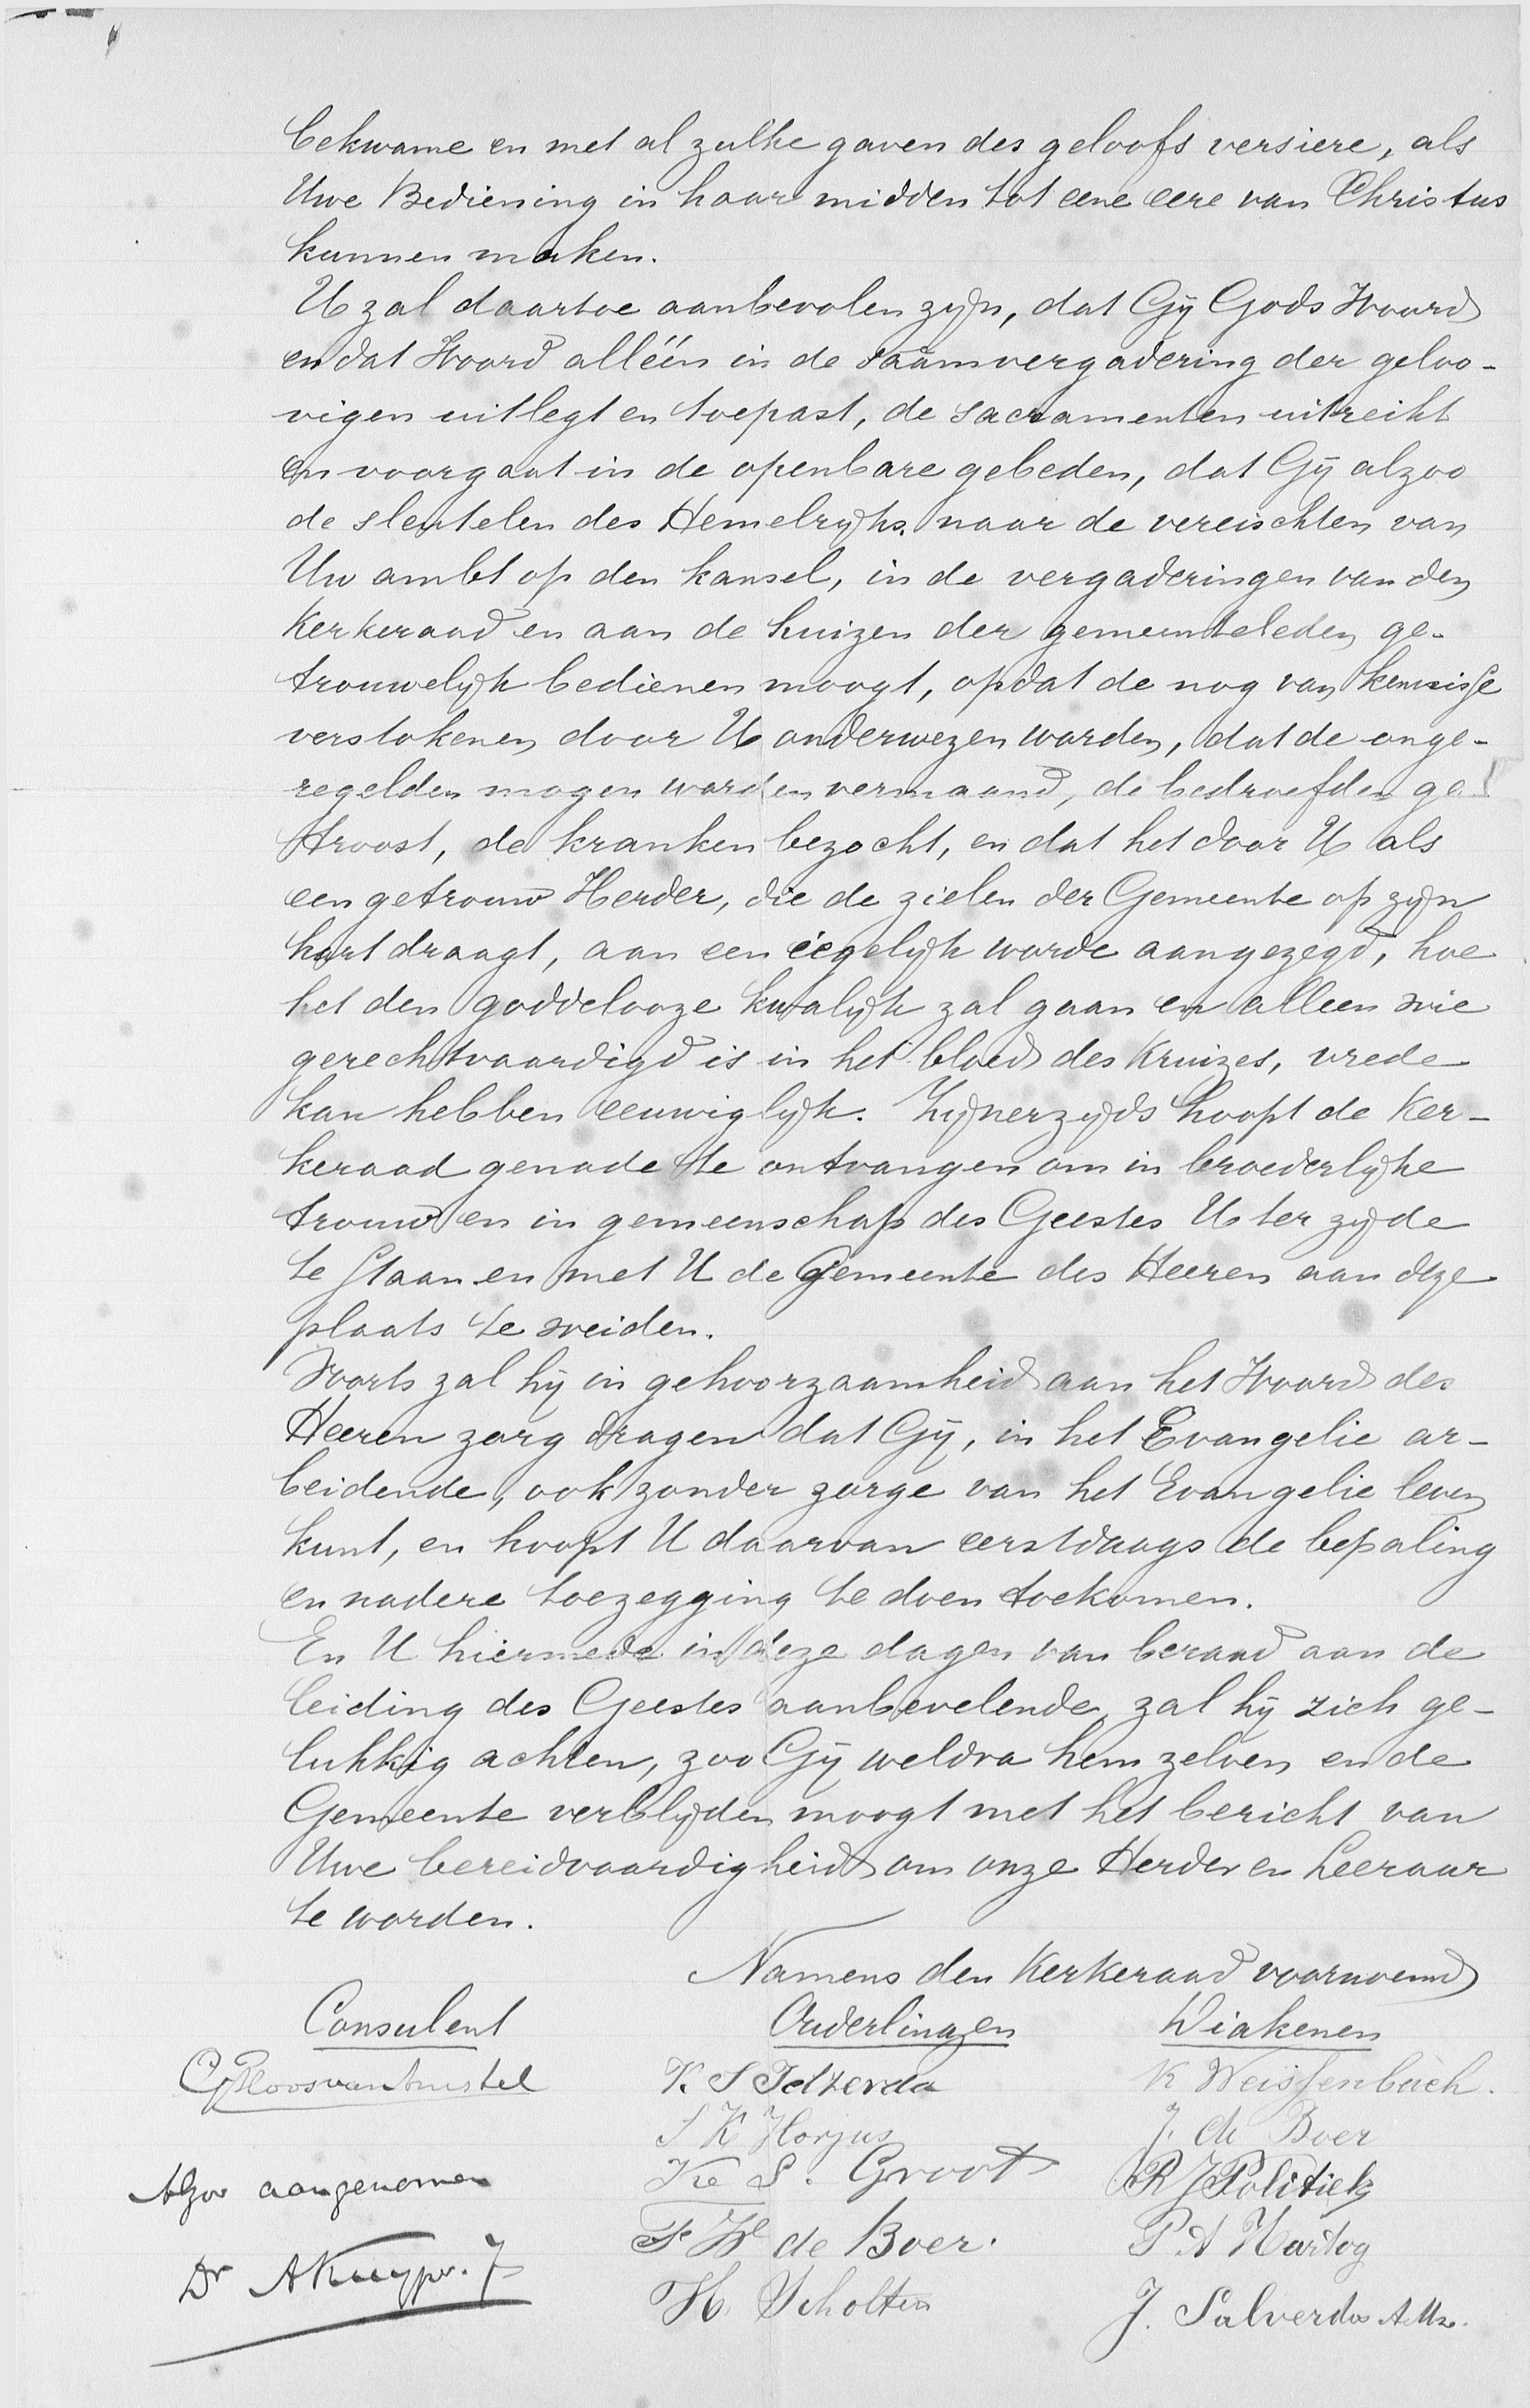 bekwame en met al zulke gaven des geloofs versiere, als
Uwe Bediening in haar midden tot eene eere van Christus
kunnen maken.
U zal daartoe aanbevolen zijn, dat Gij Gods Woord
en dat Woord alléén in de saamvergadering der geloo-
vigen uitlegt en toepast, de sacramenten uitreikt
en voorgaat in de openbare gebeden, dat Gij alzoo
de sleutelen des Hemelrijks naar de vereischten van
Uw ambt op den kansel, in de vergaderingen van den
Kerkeraad en aan de huizen der gemeenteleden ge-
trouwelijk bedienen moogt, opdat de nog van kennisse
verstokenen door U onderwezen worden, dat de onge-
regelden mogen worden vermaand, de bedroefden ge-
troost, de kranken bezocht, en dat het door U als
een getrouw Herder, die de zielen der Gemeente op zijn
hart draagt, aan een iegelijk worde aangezegd, hoe
het den goddelooze kwalijk zal gaan en alleen wie
gerechtvaardigd is in het bloed des Kruizes, vrede
kan hebben eeuwiglijk. Zijnerzijds hoopt de Ker-
keraad genade te ontvangen om in broederlijke
trouw en in gemeenschap des Geestes U ter zijde
te staan en met U de Gemeente des Heeren aan deze
plaats te weiden.
Voorts zal hij in gehoorzaamheid aan het Woord des
Heeren zorg dragen dat Gij, in het Evangelie ar-
beidende, ook zonder zorge van het Evangelie leven
kunt, en hoopt U daarvan eerstdaags de bepaling
en nadere toezegging te doen toekomen.
En U hiermede in deze dagen van beraad aan de
leiding des Geestes aanbevelende, zal hij zich ge-
lukkig achten, zoo Gij weldra hem zelven en de
Gemeente verblijden moogt met het bericht van
Uwe bereidvaardigheid om onze Herder en Leeraar
te worden.
Namens den Kerkeraad voornoemd
Consulent Ouderlingen Diakenen
C Ploos van Amstel K. S Idzerda K Weissenbach.
S K Horjus J. de Boer
Ke S. Groot R J Politiek
Alzoo aangenomen
F W de Boer. P A Hartog
Dr A Kuyper. J
H. Scholten J. Salverda